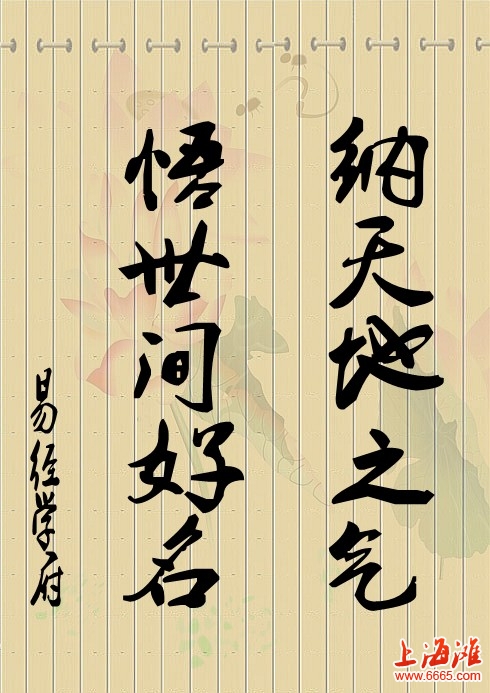 纳天地之气
悟世间好名
易经学府
上海滩
www.6665.com